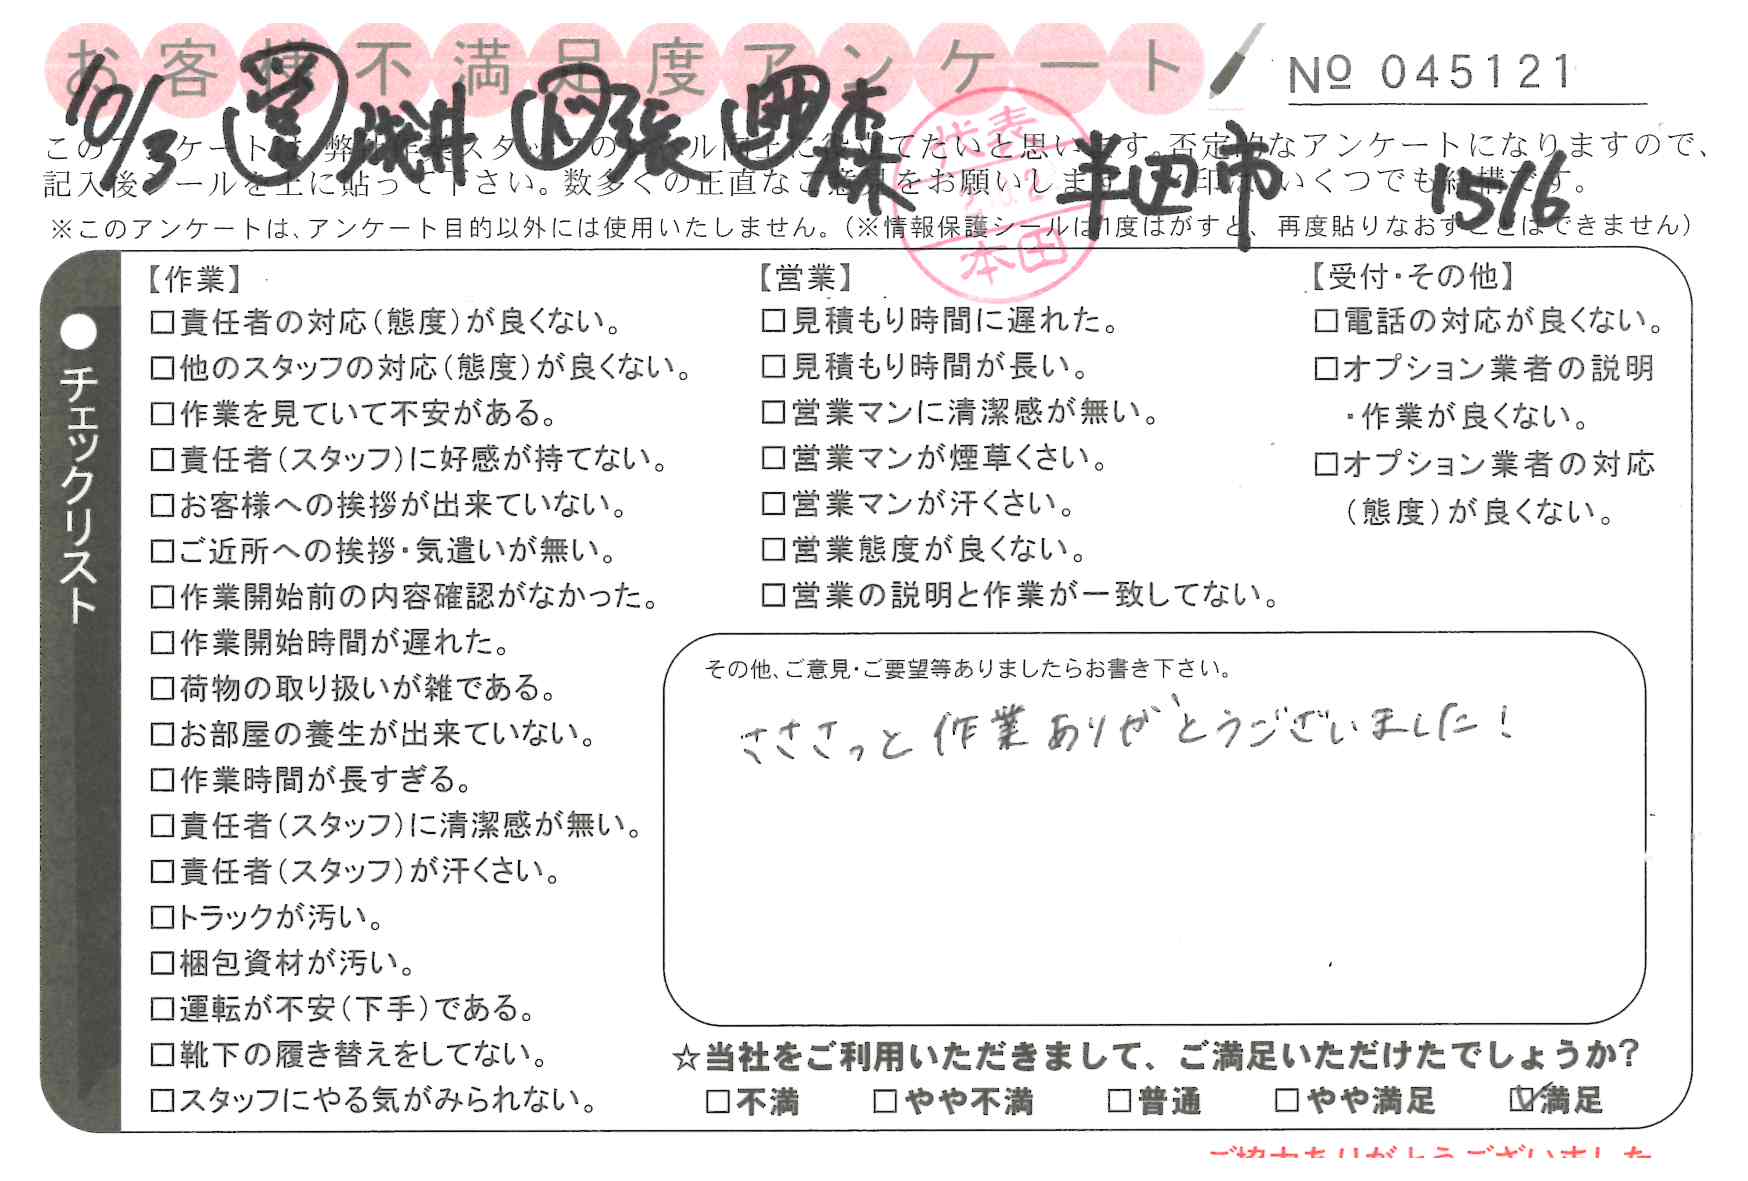 お客様不満足度アンケート
№ 045121
10/3 営 ト 張 半田市 1516
このアンケートは、弊社作業スタッフのレベル向上に役立てたいと思います。否定的なアンケートになりますので、
記入後シールを上に貼って下さい。数多くの正直なご意見をお願いします。 印は、いくつでも結構です。
※このアンケートは、アンケート目的以外には使用いたしません。（※情報保護シールは1度はがすと、再度貼りなおすことはできません）
代表
本田
●チェックリスト
【作業】
□責任者の対応（態度）が良くない。
□他のスタッフの対応（態度）が良くない。
□作業を見ていて不安がある。
□責任者（スタッフ）に好感が持てない。
□お客様への挨拶が出来ていない。
□ご近所への挨拶・気遣いが無い。
□作業開始前の内容確認がなかった。
□作業開始時間が遅れた。
□荷物の取り扱いが雑である。
□お部屋の養生が出来ていない。
□作業時間が長すぎる。
□責任者（スタッフ）に清潔感が無い。
□責任者（スタッフ）が汗くさい。
□トラックが汚い。
□梱包資材が汚い。
□運転が不安（下手）である。
□靴下の履き替えをしてない。
□スタッフにやる気がみられない。
【営業】
□見積もり時間に遅れた。
□見積もり時間が長い。
□営業マンに清潔感が無い。
□営業マンが煙草くさい。
□営業マンが汗くさい。
□営業態度が良くない。
□営業の説明と作業が一致してない。
【受付・その他】
□電話の対応が良くない。
□オプション業者の説明
・作業が良くない。
□オプション業者の対応
（態度）が良くない。
その他、ご意見・ご要望等ありましたらお書き下さい。
さささっと作業ありがとうございました！
☆当社をご利用いただきまして、ご満足いただけたでしょうか?
□不満 □やや不満 □普通 □やや満足 ☑満足
ご協力ありがとうございました